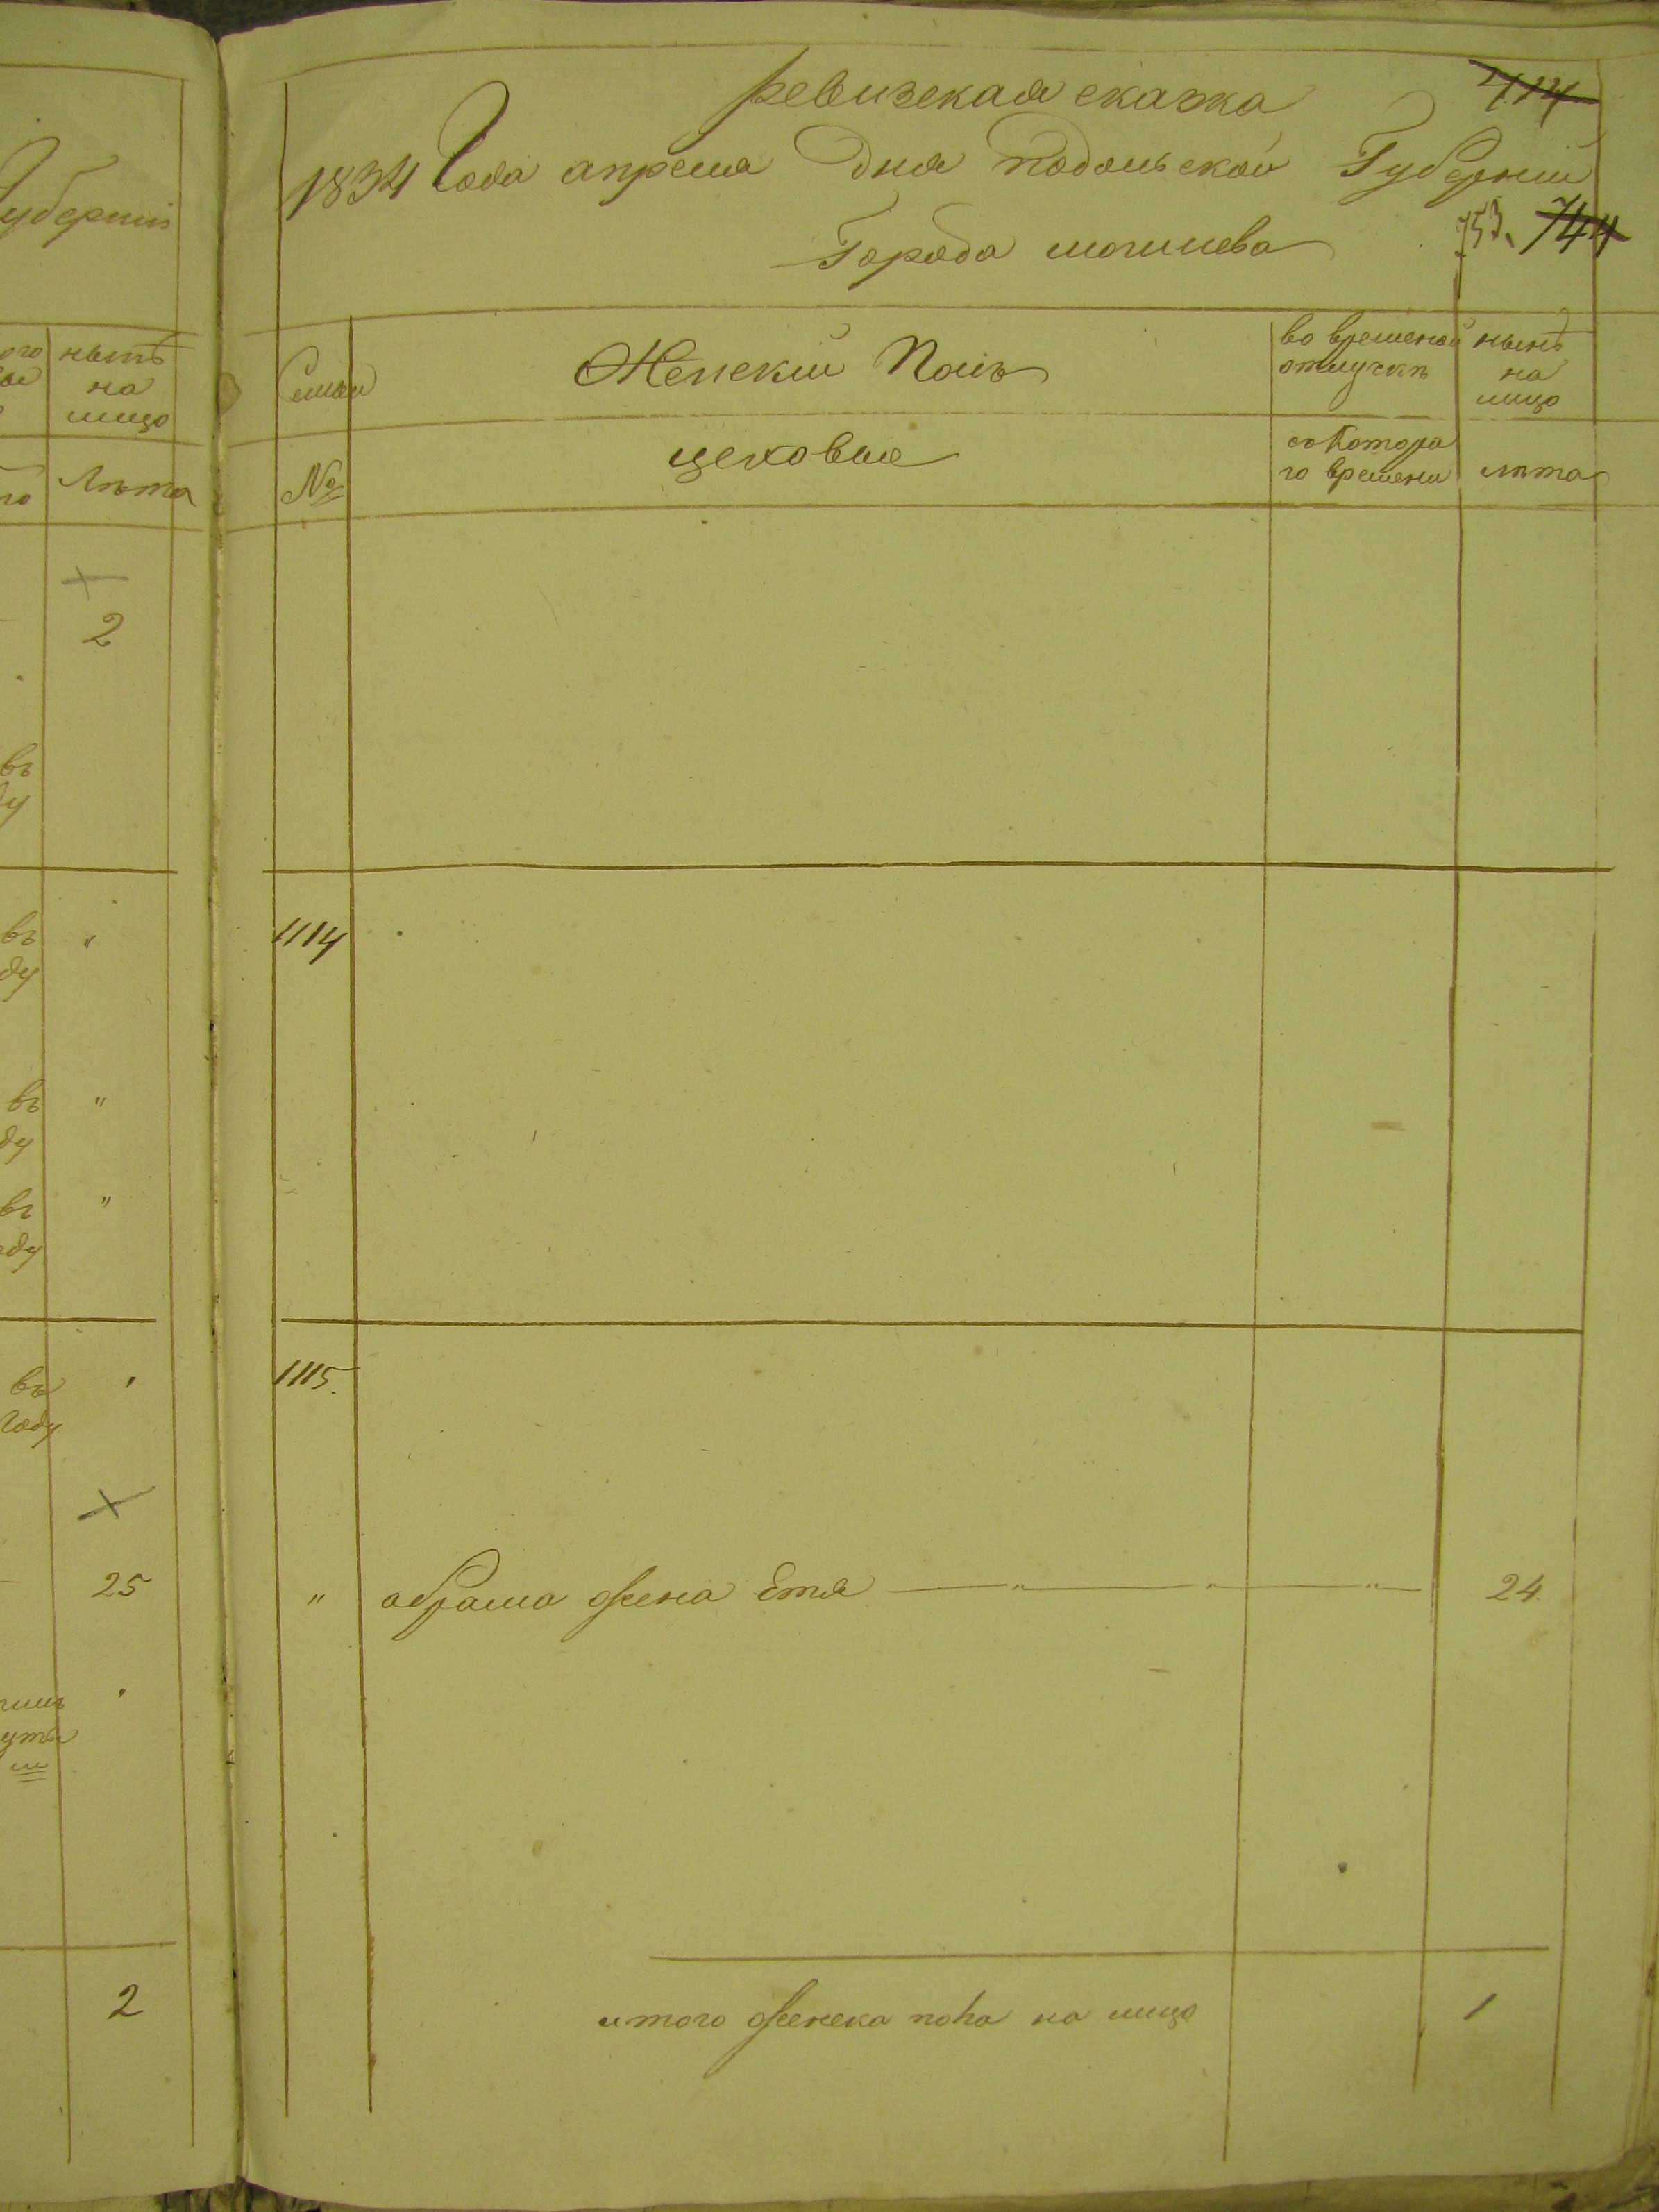 Губерніи
ныне
на
лицо
Лета
2
въ
ду
въ
ду
въ
ду
въ
ду
въ
Году
25
2
ревизская сказка
414
1834 Года апреля дня подольской Губерніи
Города могилева
753. 744
Семьи
Женскій Полъ
во временой
отлучкѣ
нынѣ
на
лицо
№
цеховые
съ котора
го времени
лѣта
1114
1115.
" абрама жена Етя " " " 24
итого женска пола на лицо 1